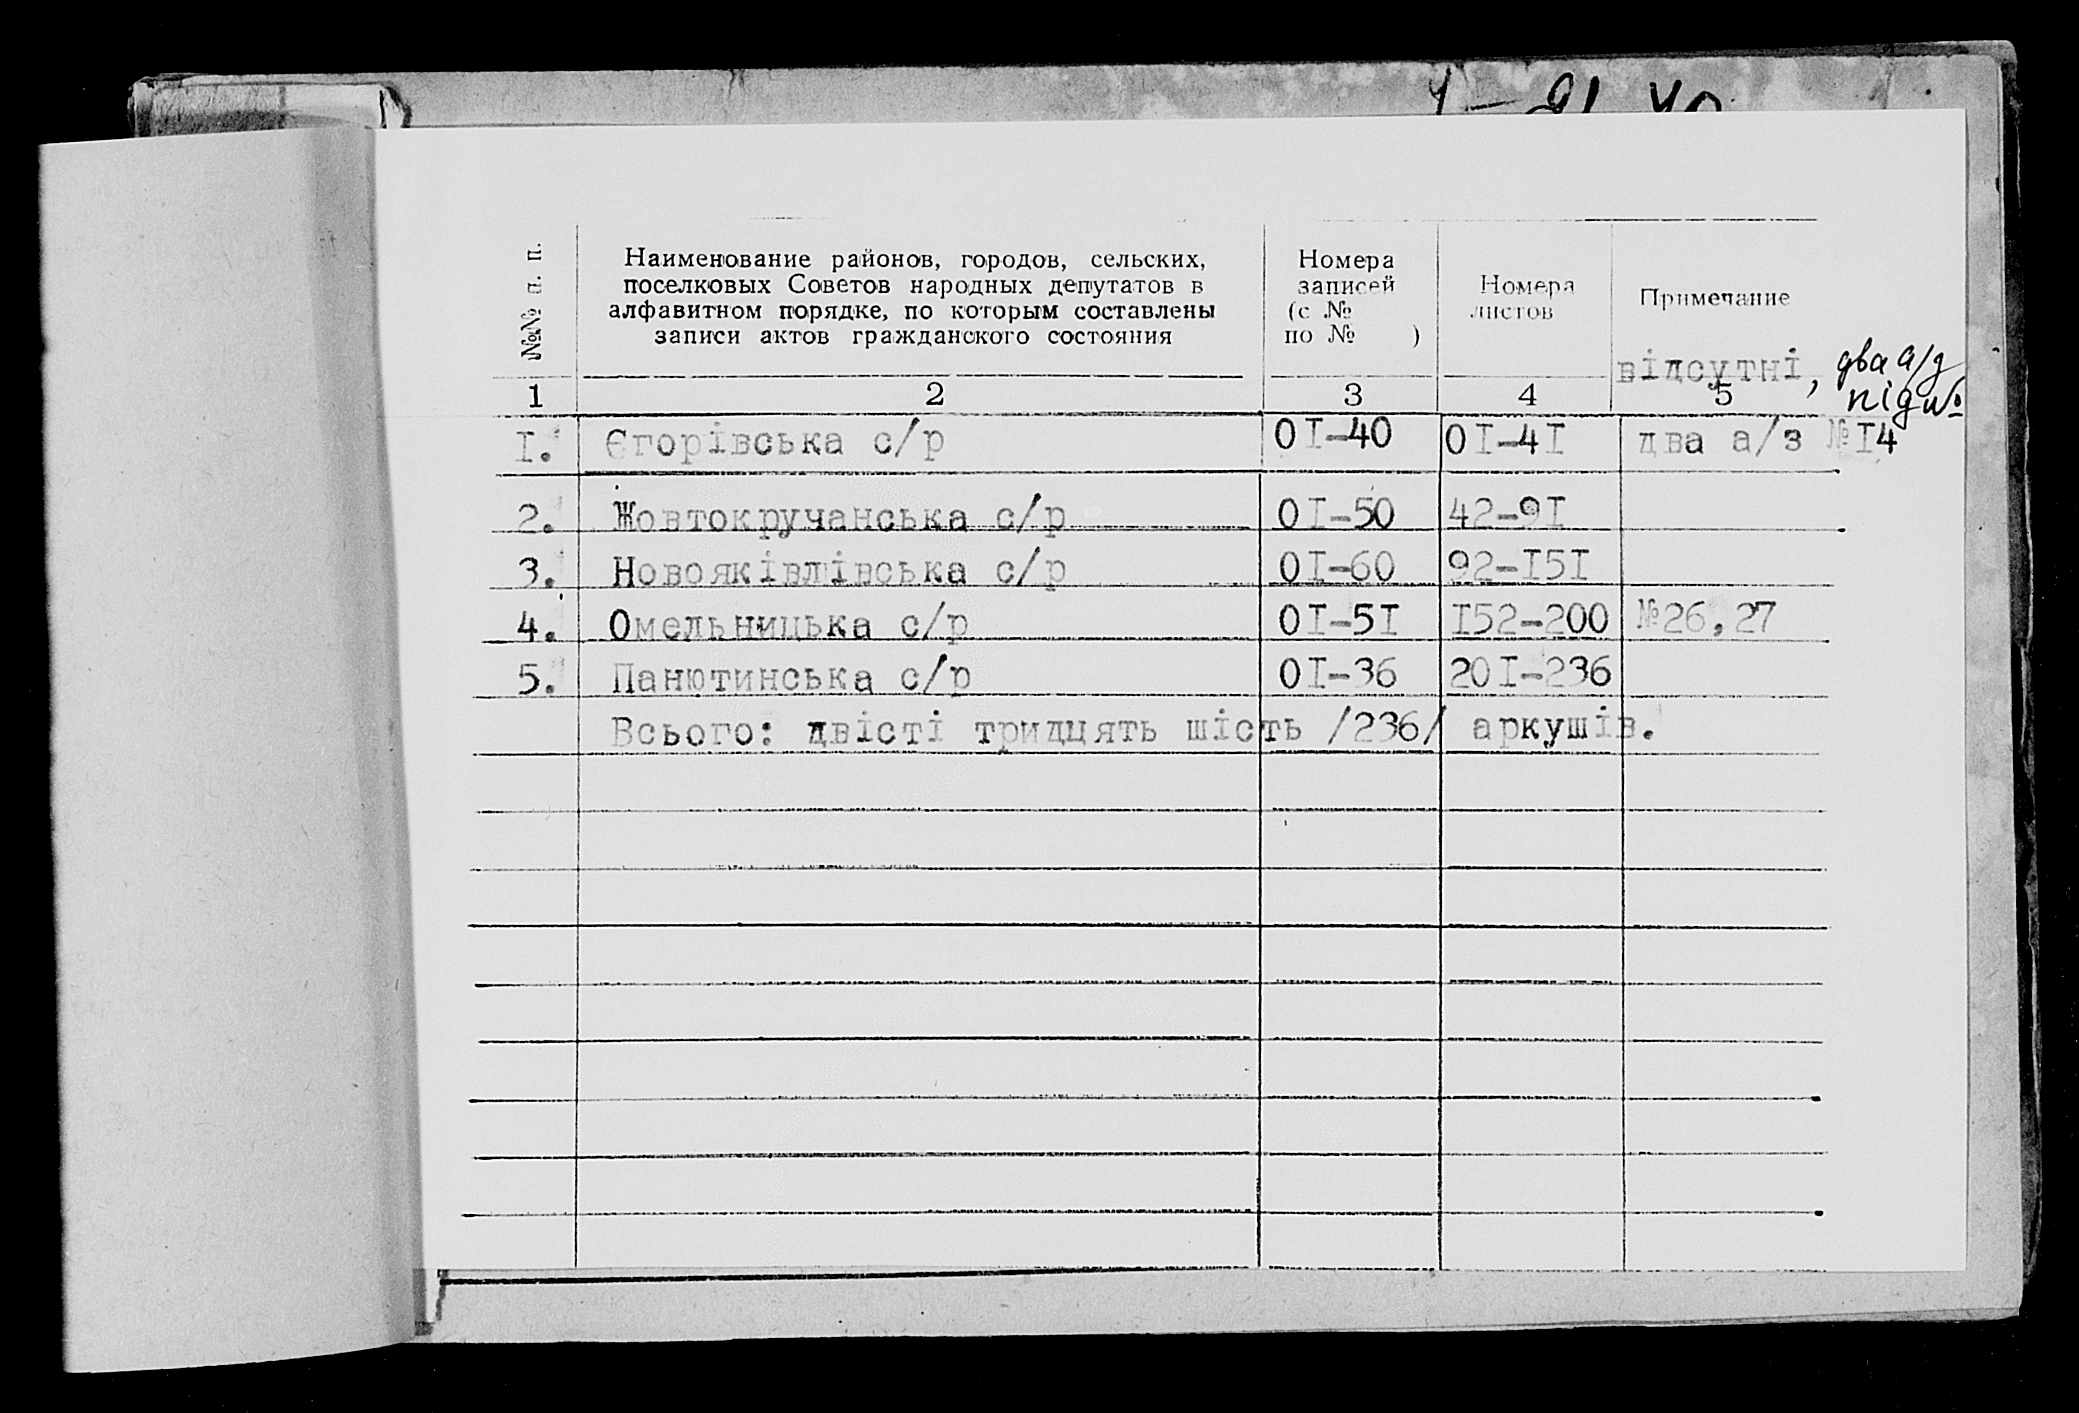 №№ п. п.
Наименование районов, городов, сельских,
поселковых Советов народных депутатов в
алфавитном порядке, по которым составлены
записи актов гражданского состояния
Номера
записей
(с №
по № )
Номера
листов
Примечание
відсутні, два а/з
під №
1 2 3 4 5
I. Єгорівська с/р 0I-40 0I-4I два а/з №I4
2. Жовтокручанська с/р 0I-50 42-9I
3. Новояківлівська с/р 0I-60 92-I5I
4. Омельницька с/р 0I-5I I52-200 №26,27
5. Панютинська с/р 0I-36 20I-236
Всього: двісті тридцять шість /236/ аркушів.